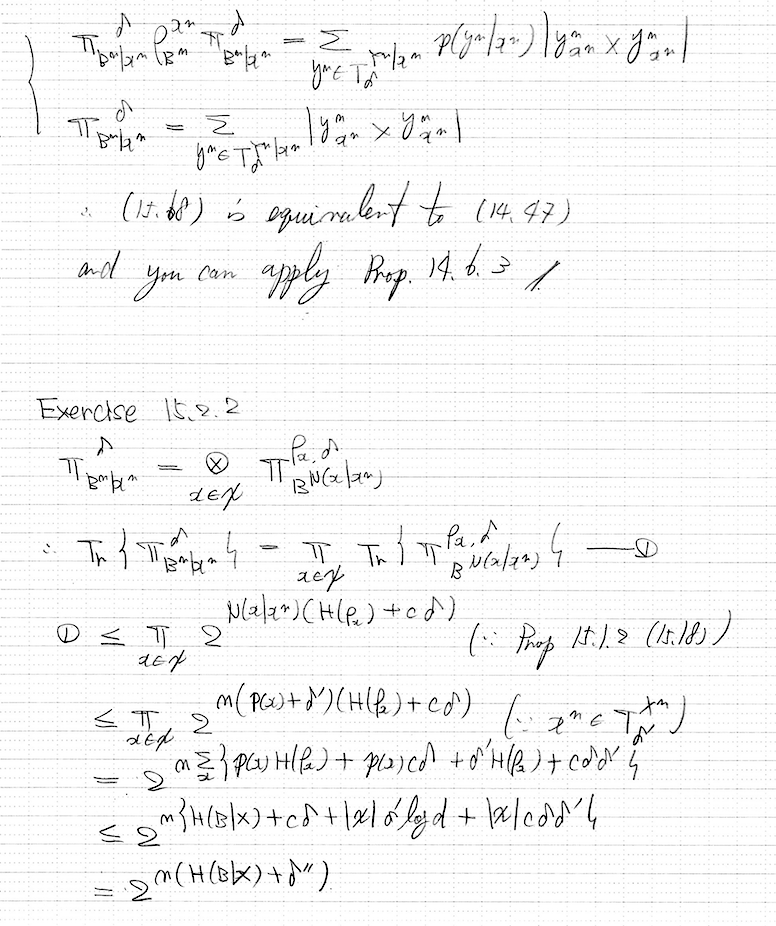 Π^δ_{B^n|x^n} ρ^{x^n}_{B^n} Π^δ_{B^n|x^n} = Σ_{y^n∈T_δ^{Y^n|x^n}} p(y^n|x^n) |y^n_{x^n} × y^n_{x^n}|
Π^δ_{B^n|x^n} = Σ_{y^n∈T_δ^{Y^n|x^n}} |y^n_{x^n} × y^n_{x^n}|
∴ (15.68) is equivalent to (14.47)
and you can apply Prop. 14.6.3
Exercise 15.2.2
Π^δ_{B^n|x^n} = ⊗_{x∈χ} Π^{ρ_x,δ}_{B^{N(x|x^n)}}
∴ Tr{Π^δ_{B^n|x^n}} = Π_{x∈χ} Tr{Π^{ρ_x,δ}_{B^{N(x|x^n)}}} — ①
① ≤ Π_{x∈χ} 2^{N(x|x^n)(H(ρ_x)+cδ)} (∵ Prop 15.1.2 (15.18))
≤ Π_{x∈χ} 2^{n(p(x)+δ')(H(ρ_x)+cδ)} (∵ x^n ∈ T_{δ'}^{X^n})
= 2^{n Σ_x {p(x)H(ρ_x) + p(x)cδ + δ'H(ρ_x) + cδδ'}}
≤ 2^{n{H(B|X) + cδ + |χ|δ' log d + |χ|cδδ'}}
= 2^{n(H(B|X)+δ'')}